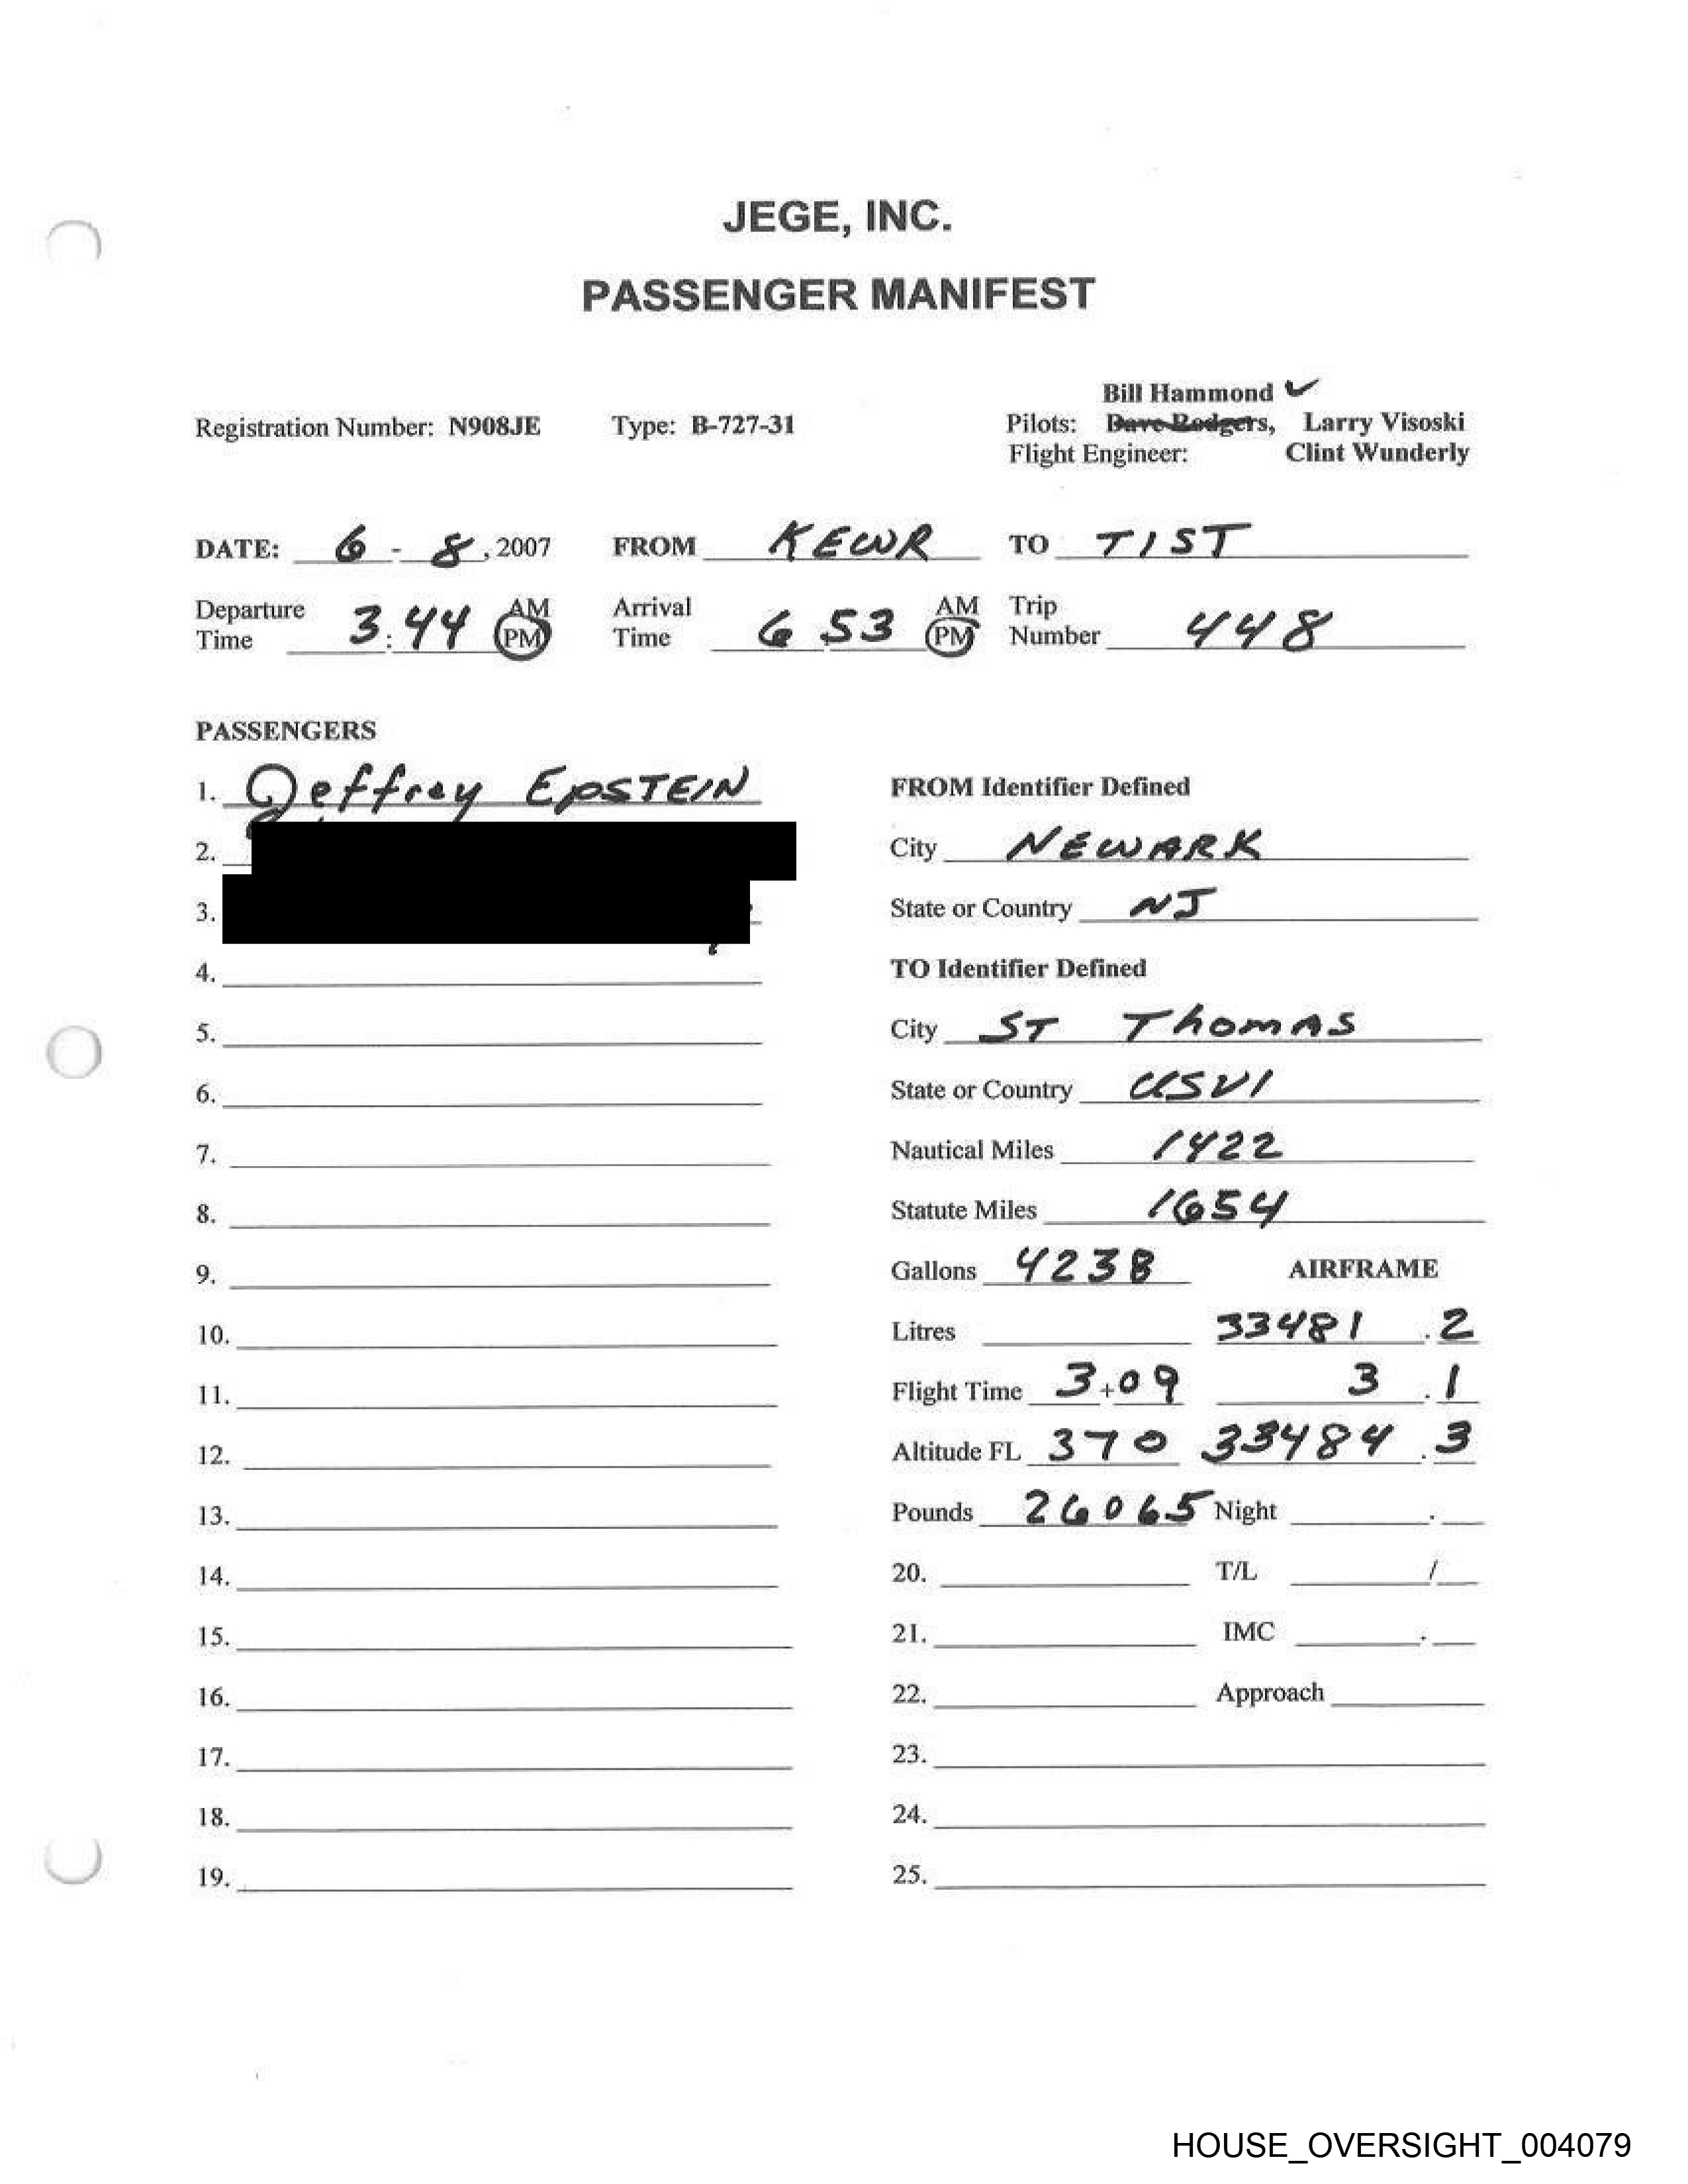 JEGE, INC.
PASSENGER MANIFEST
Bill Hammond ✓
Registration Number: N908JE Type: B-727-31 Pilots: Dave Rodgers, Larry Visoski
Flight Engineer: Clint Wunderly
DATE: 6 - 8, 2007 FROM KEWR TO TIST
Departure Time 3:44 AM PM Arrival Time 6 53 AM PM Trip Number 448
PASSENGERS
1. Jeffrey EPSTEIN
2.
3.
4.
5.
6.
7.
8.
9.
10.
11.
12.
13.
14.
15.
16.
17.
18.
19.
FROM Identifier Defined
City NEWARK
State or Country NJ
TO Identifier Defined
City ST ThomAS
State or Country USVI
Nautical Miles 1422
Statute Miles 1654
Gallons 4238 AIRFRAME
Litres 33481 .2
Flight Time 3+09 3 .1
Altitude FL 370 33484 .3
Pounds 26065 Night .
20. T/L /
21. IMC .
22. Approach
23.
24.
25.
HOUSE_OVERSIGHT_004079